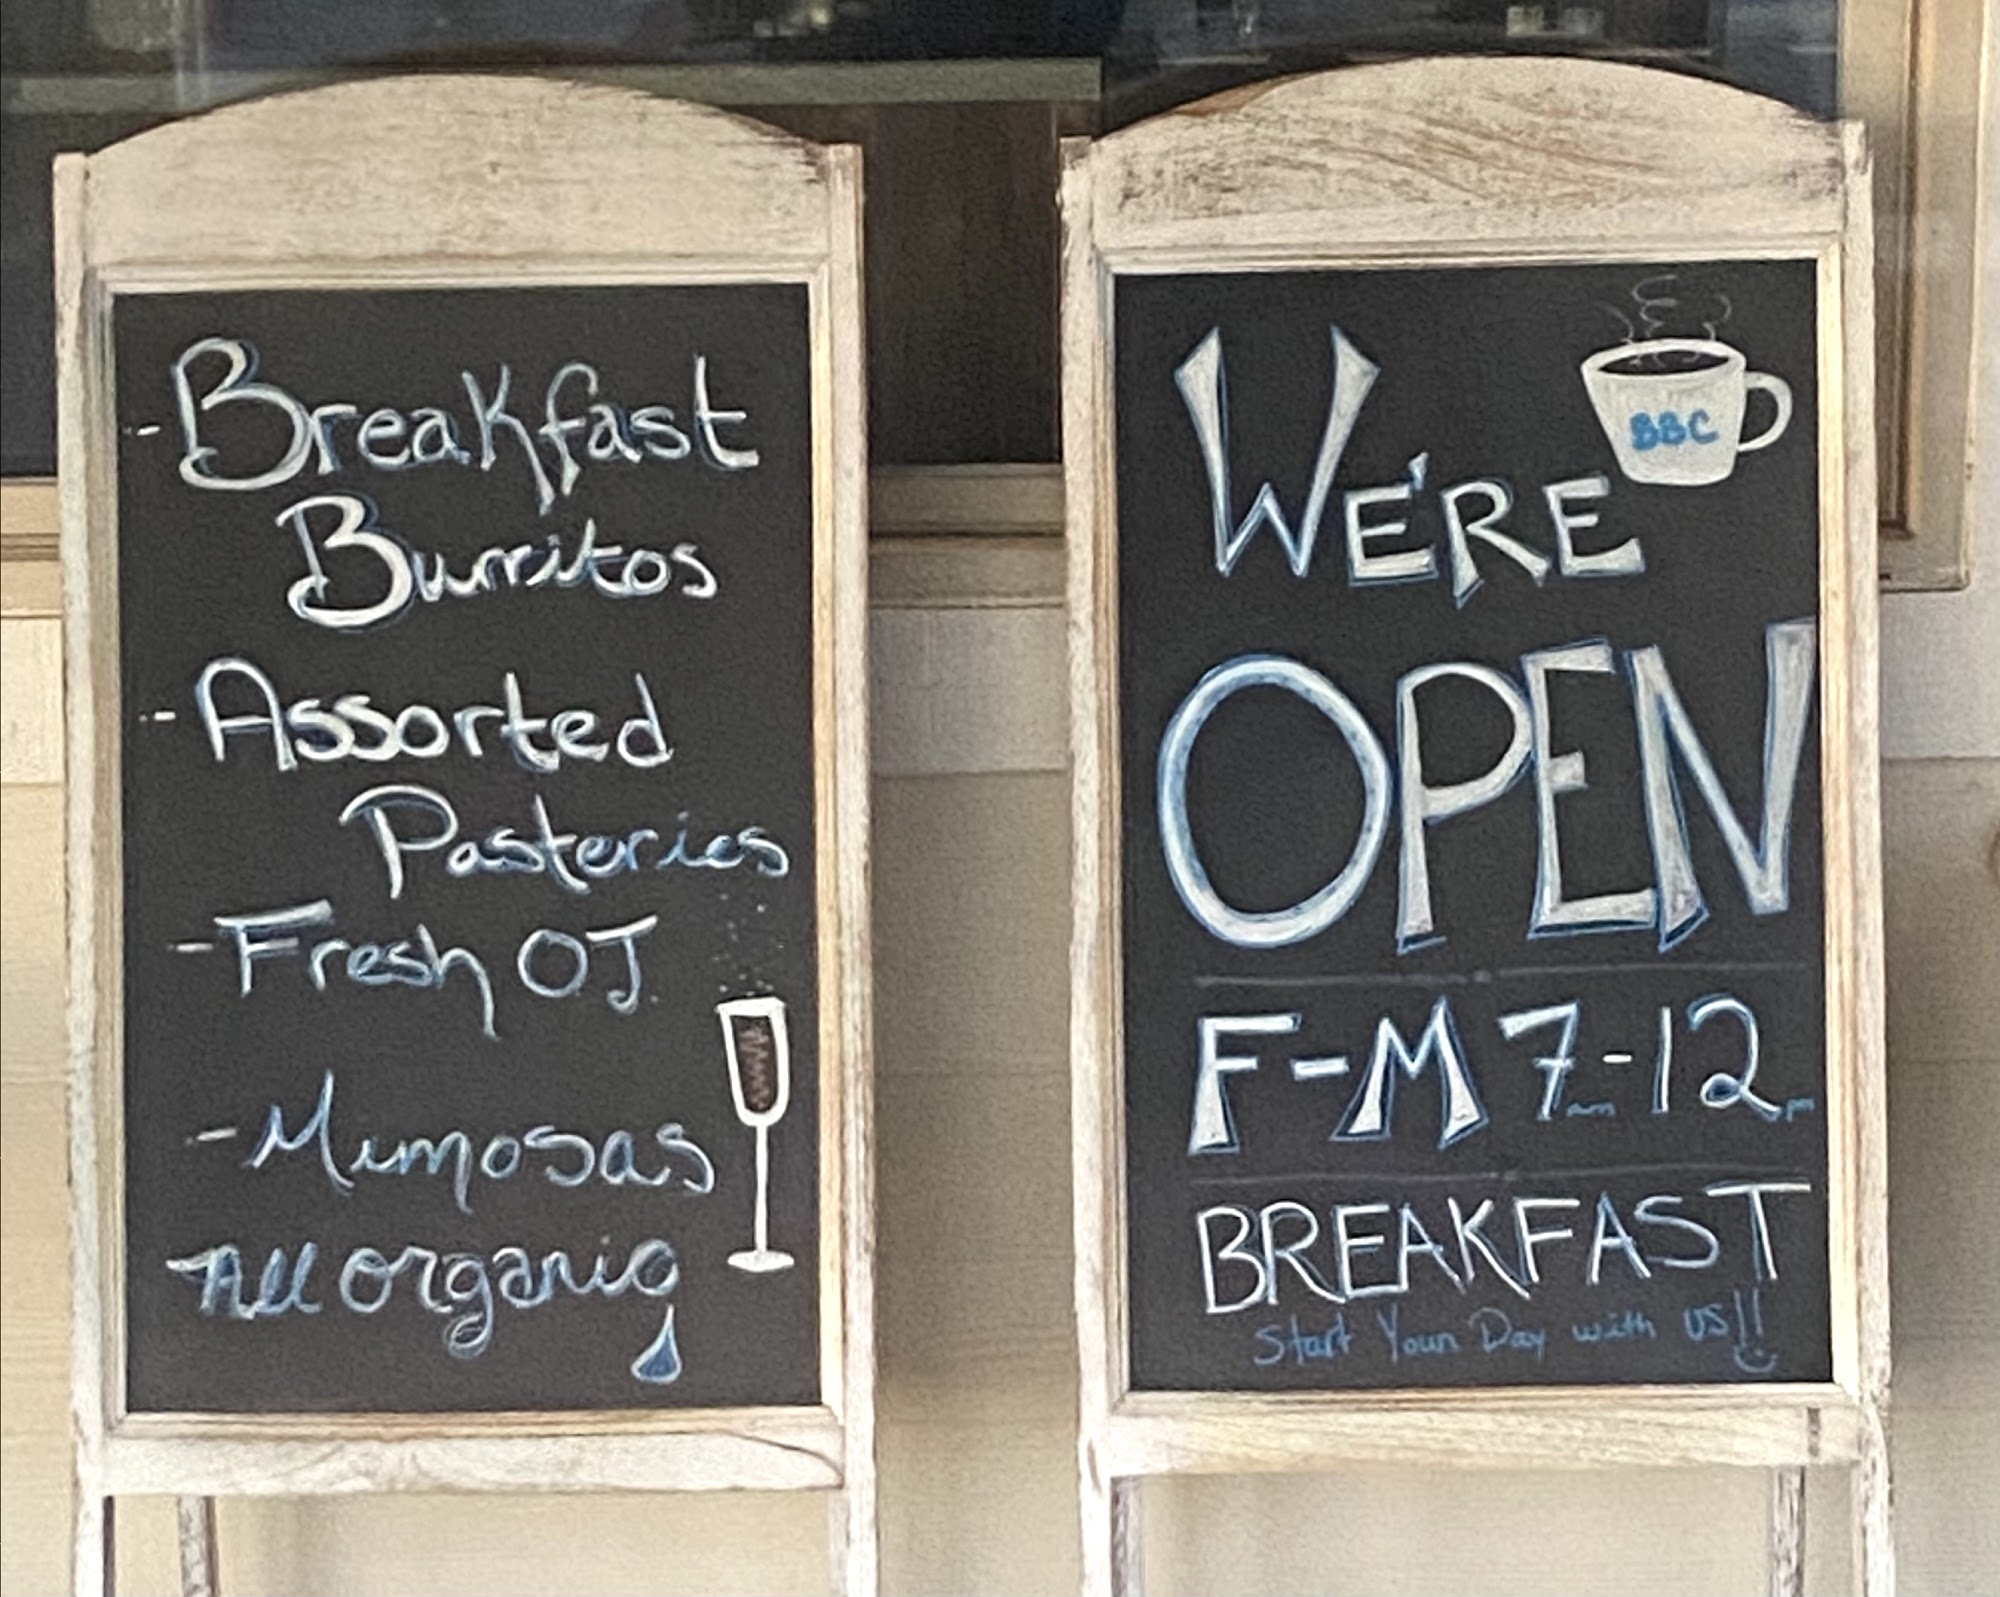 - Breakfast
Burritos
- Assorted
Pasteries
- Fresh OJ
- Mimosas
All organic
BBC
WE'RE
OPEN
F-M 7am-12pm
BREAKFAST
Start Your Day with us!!